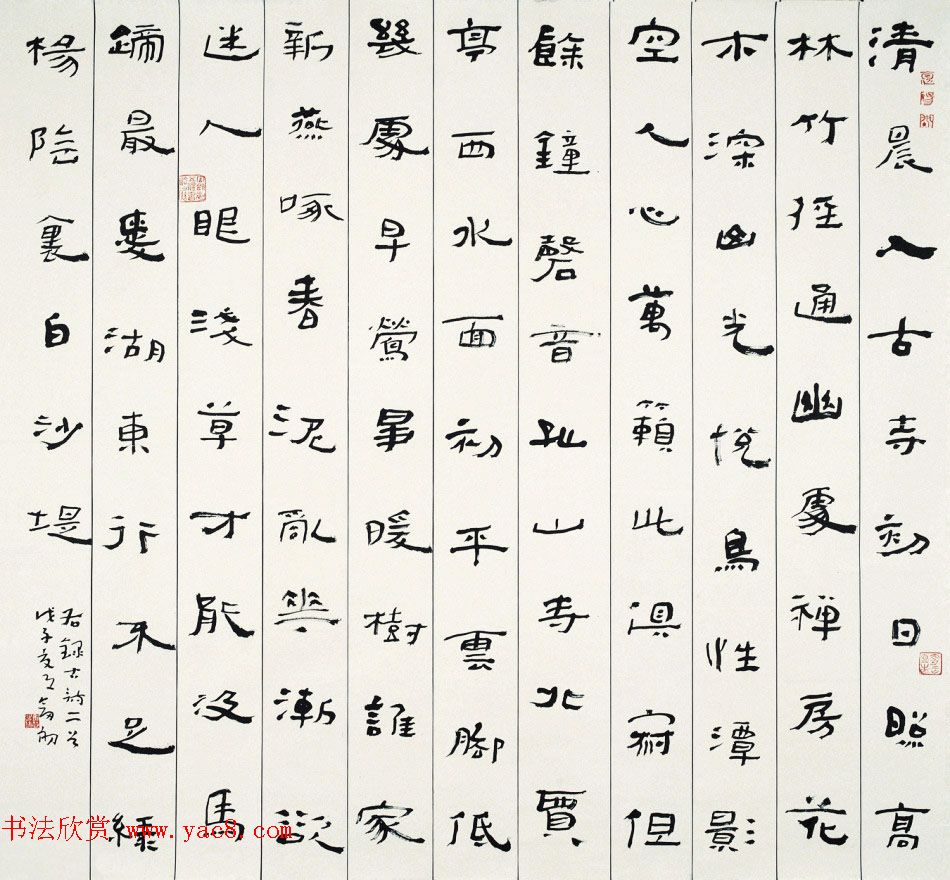 清晨入古寺初日照高
林竹徑通幽處禪房花
木深山光悅鳥性潭影
空人心萬籟此俱寂但
餘鐘磬音孤山寺北賈
亭西水面初平雲腳低
幾處早鶯爭暖樹誰家
新燕啄春泥亂花漸欲
迷人眼淺草才能沒馬
蹄最愛湖東行不足綠
楊陰裏白沙堤
右錄古詩二首
戊子夏月
书法欣赏 www.yac8.com